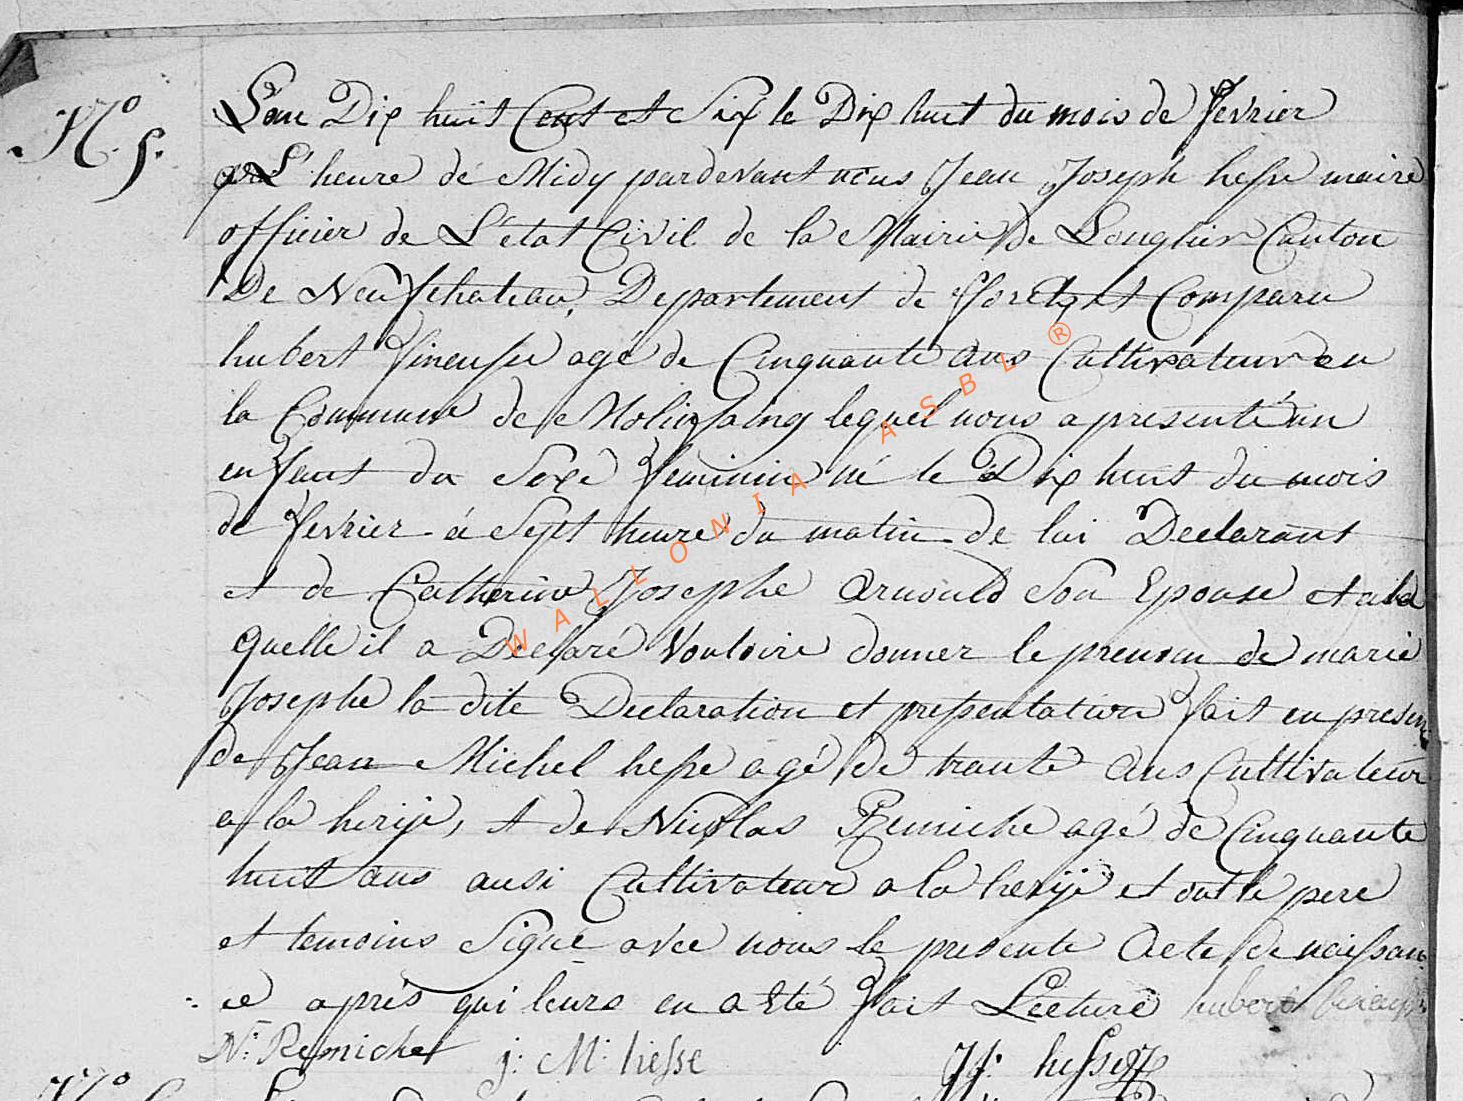 N.º 5.
L'an Dix huit Cent et Six le Dix huit du mois de fevrier
L'heure de Midy pardevant nous Jean Joseph hesse maire
officier de L'etat Civil de la Mairie de Longlier Canton
De Neufchateau, Departement de forets, est Comparu
hubert fineuse agé de Cinquante ans Cultivateur en
la Commune de Molinfaing lequel nous a presenté un
enfant du Sexe feminin né le Dix huit du mois
de fevrier á Sept heure du matin de lui Declarant
et de Catherine Josephe Arnould Son Epouse et a la
quelle il a Declaré Vouloire donner le prenom de marie
Josephe la dite Declaration et presentation fait en presen
de Jean Michel hesse agé de trante Ans Cultivateur
a la herije, et de Nicolas Remiche agé de Cinquante
huit ans ausi Cultivateur a la herije et ont le pere
et temoins Signé avec nous le presente Acte de naissan
ce aprés qui leurs en a Eté fait Lecture hubert
N: Remiche j: M: hesse JJ: hesse
N.º
WALLONIA ASBL ®